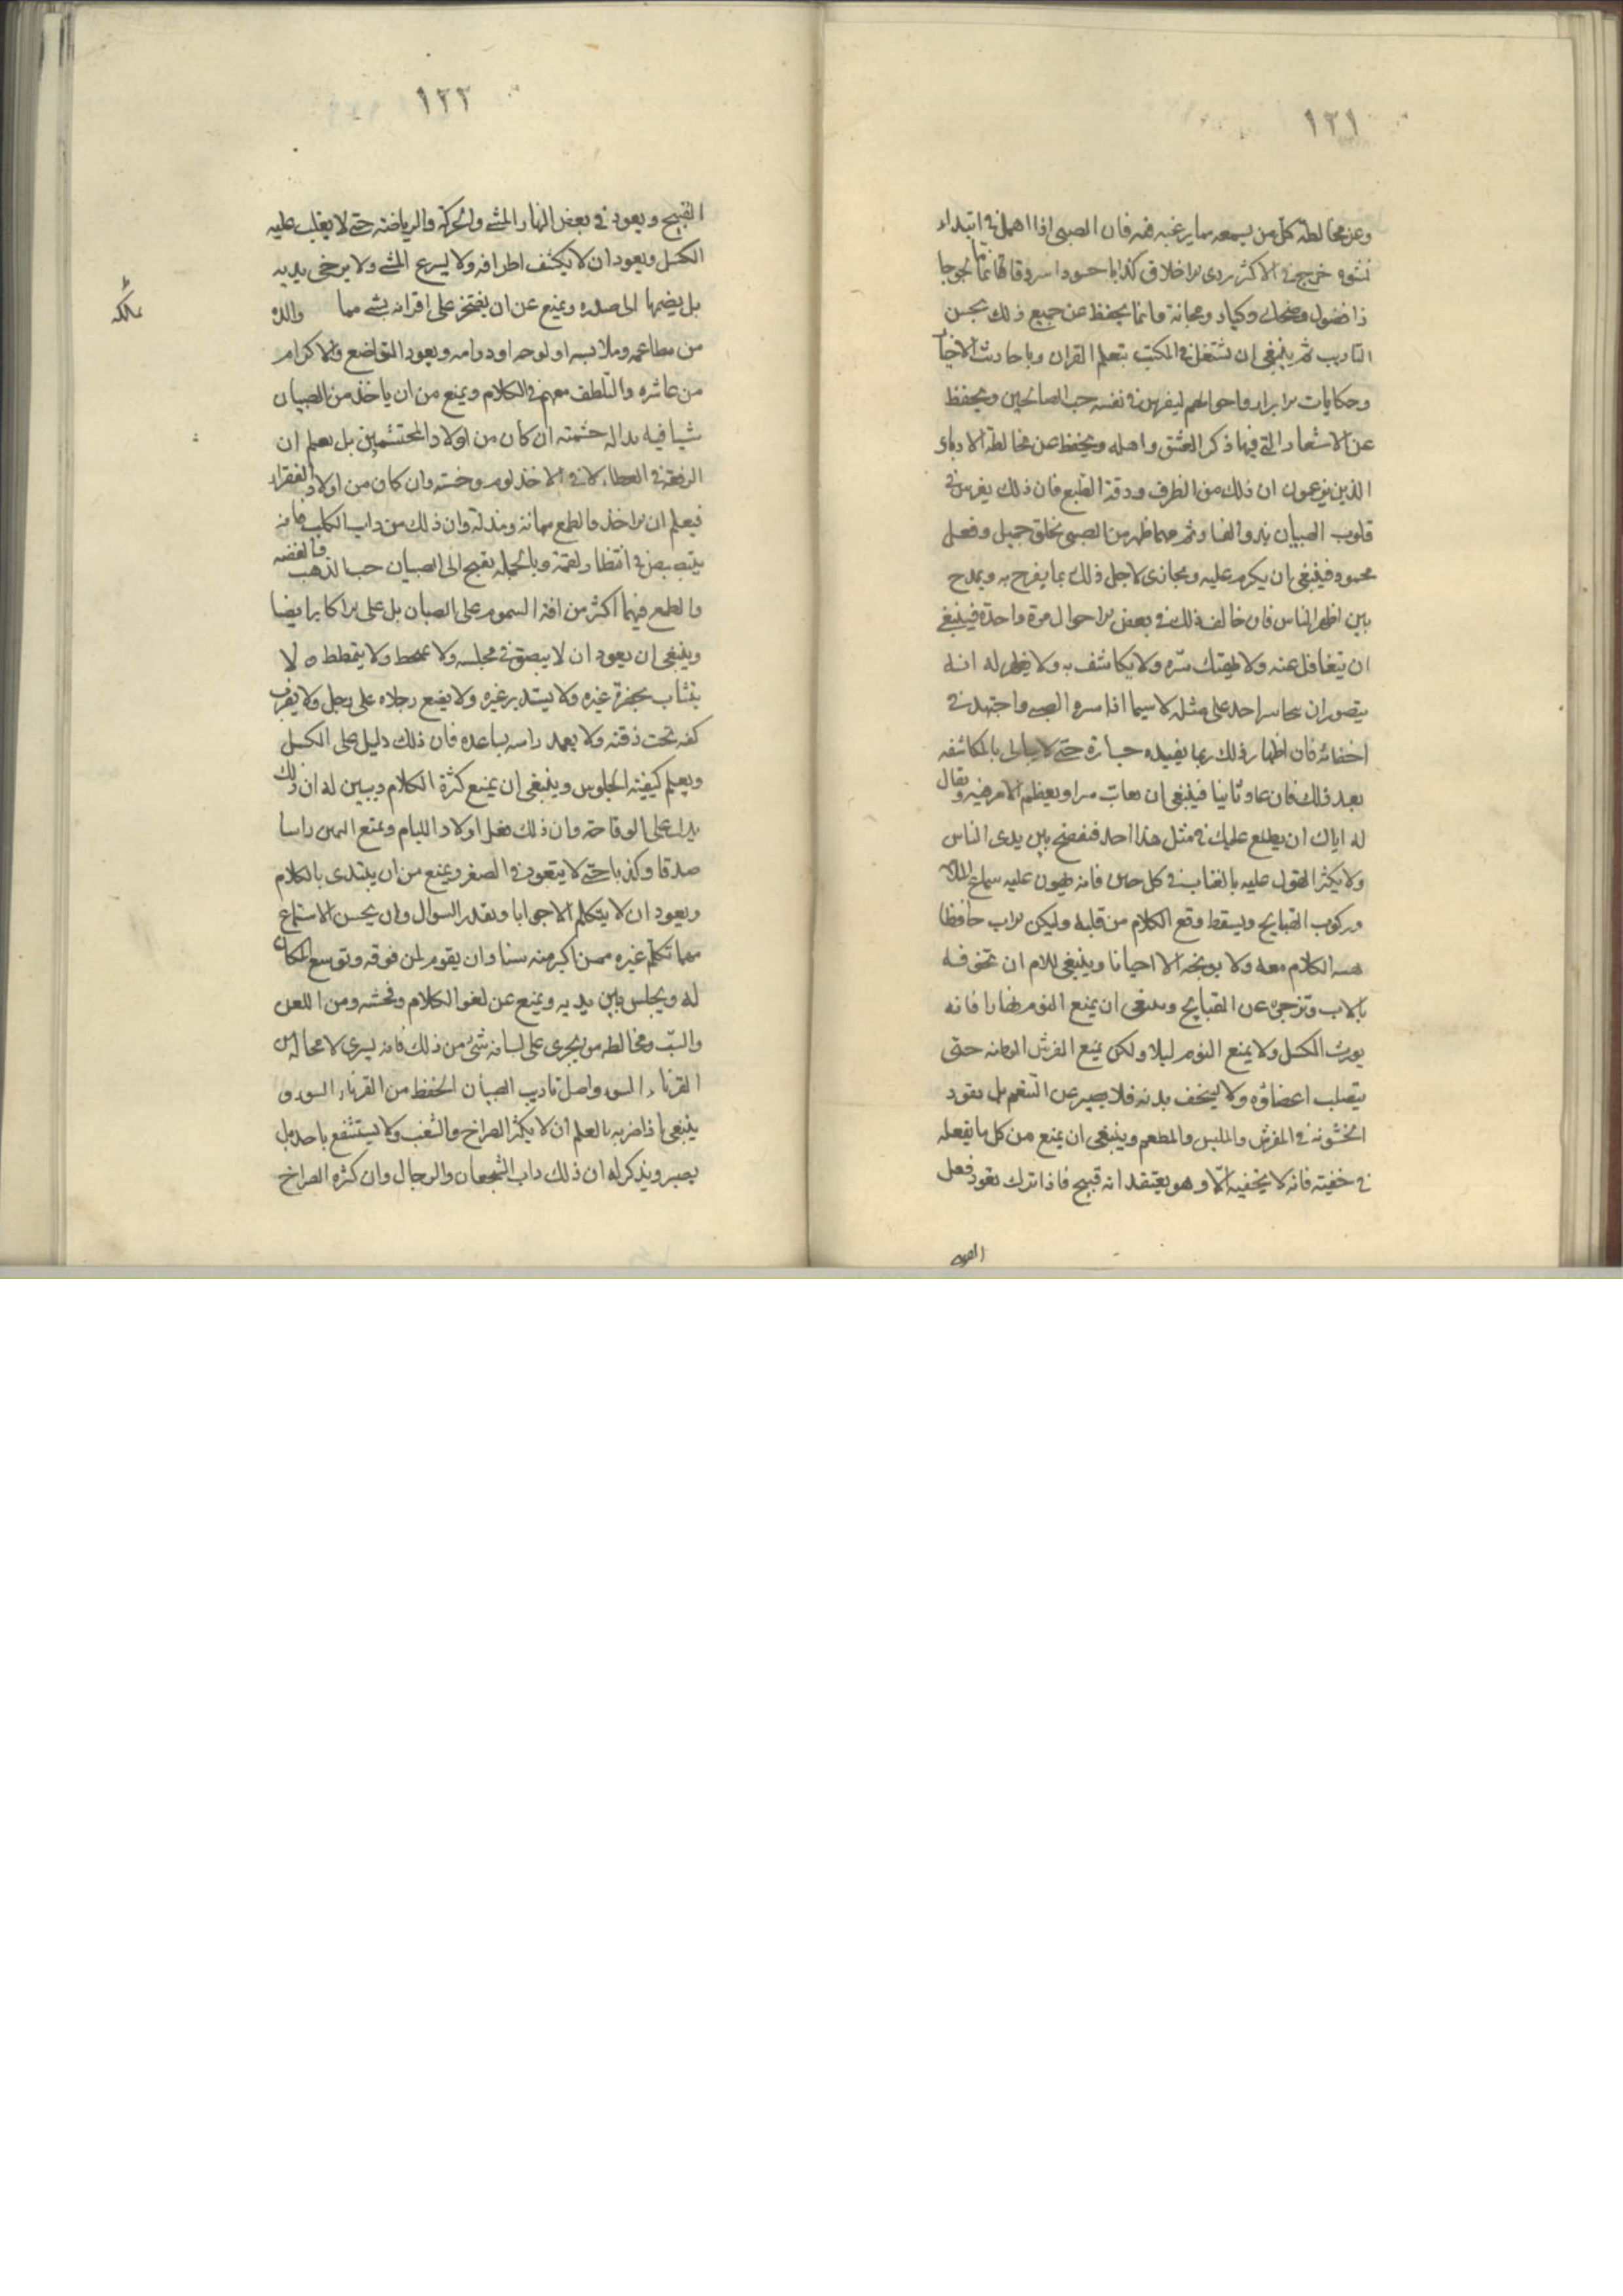 ١٢١
وعن مخالطة كل من يسمعه ما يرغبه فيه فان الصبى اذا اهمل فى ابتداء
نشوه خرج فى الاكثر ردى الاخلاق كذابا حسودا سروقا نماما لجوجا
ذا فضول وضحك وكياد ومجانة وانما يحفظ عن جميع ذلك بحسن
التاديب ثم ينبغى ان تشتغل فى المكتب بتعلم القران وباحاديث الاخيار
وحكايات الابرار واحوالهم ليغرس فى نفسه حب الصالحين ويحفظ
عن الاشعار التى فيها ذكر العشق واهله ويحفظ عن مخالطة الادباء
الذين يزعمون ان ذلك من الظرف ورقة الطبع فان ذلك يغرس فى
قلوب الصبيان بذر الفساد ثم مهما ظهر من الصبى خلق جميل وفعل
محمود فينبغى ان يكرم عليه ويجازى لاجل ذلك بما يفرح به ويمدح
بين اظهر الناس فان خالف ذلك فى بعض الاحوال مرة واحدة فينبغى
ان يتغافل عنه ولا يهتك ستره ولا يكاشف به ولا يظهر له انه
يتصور ان يتجاسر احد على مثله لا سيما اذا ستره الصبى واجتهد فى
اخفائه فان اظهار ذلك ربما يفيده جسارة حتى لا يبالى بالمكاشفه
بعد ذلك فان عاد ثانيا فينبغى ان يعاتب سرا ويعظم الامر فيه ويقال
له اياك ان يطلع عليك فى مثل هذا احد فتفضح بين يدى الناس
ولا يكثر القول عليه بالعتاب فى كل حين فانه يهون عليه سماع الملامة
وركوب القبايح ويسقط وقع الكلام من قلبه وليكن الاب حافظا
هيبة الكلام معه ولا يوبخه الا احيانا وينبغى للام ان تخوفه
بالاب وتزجره عن القبايح وينبغى ان يمنع النوم نهارا فانه
يورث الكسل ولا يمنع النوم ليلا ولكن يمنع الفرش الوطئه حتى
يتصلب اعضاؤه ولا يسخف بدنه فلا يصبر عن التنعم بل يعود
الخشونه فى المفرش والملبس والمطعم وينبغى ان يمنع من كل ما يفعله
فى خفيته فانه لا يخفيه الّا وهو يعتقد انه قبيح فاذا ترك تعود فعل
القبيح
١٢٢
القبيح ويعود فى بعض النهار المشى والحركة والرياضه حتى لا يغلب عليه
الكسل ويعود ان لا يكشف اطرافه ولا يسرع المشى ولا يرخى يديه
بل يضمها الى صدره ويمنع عن ان يفتخر على اقرانه بشى مما والده
من مطاعمه وملابسه او لوحه او دواته ويعود التواضع والاكرام
من عاشره والتلطف معهم فى الكلام ويمنع من ان ياخذ من الصبيان
شيا فيه بداله حشمته ان كان من اولاد المحتشمين بل يعلم ان
الرفعة فى العطاء لا فى الاخذ لوم وخسه وان كان من اولاد الفقراء
فيعلم ان الاخذ والطمع مهانة ومذلة وان ذلك من داب الكلب فانه
يتبصبص فى انتظار لقمة وبالجملة يقبح الى الصبيان حب الذهب والفضه
والطمع فيهما اكثر من افة السموم على الصبيان بل على الاكابر ايضا
وينبغى ان يعود ان لا يبصق فى مجلسه ولا يمخط ولا يتمطط ولا
يتثاب بحضرة غيره ولا يستدبر غيره ولا يضع رجلا على رجل ولا يضرب
كفه تحت ذقنه ولا يعمد راسه بساعده فان ذلك دليل على الكسل
ويعلم كيفية الجلوس وينبغى ان يمنع كثرة الكلام ويبين له ان ذلك
يدل على الوقاحة وان ذلك فعل اولاد الليام ويمنع اليمين راسا
صدقا وكذبا حتى لا يتعود فى الصغر ويمنع من ان يبتدى بالكلام
ويعود ان لا يتكلم الا جوابا وبقدر السوال وان يحسن الاستماع
مهما تكلم غيره ممن اكبر منه سنا وان يقوم لمن فوقه وتوسع المكان
له ويجلس بين يديه ويمنع عن لغو الكلام وفحشه ومن اللعن
والسبّ ومخالطه من يجرى على لسانه شئ من ذلك فانه يسرى لا محالة من
القرناء السوء واصل تاديب الصبيان الحفظ من القرناء السوء و
ينبغى اذا ضربه المعلم ان لا يكثر الصراخ والشغب ولا يستشفع باحد بل
يصبر ويذكر له ان ذلك داب الشجعان والرجال وان كثره الصراخ
يملكه